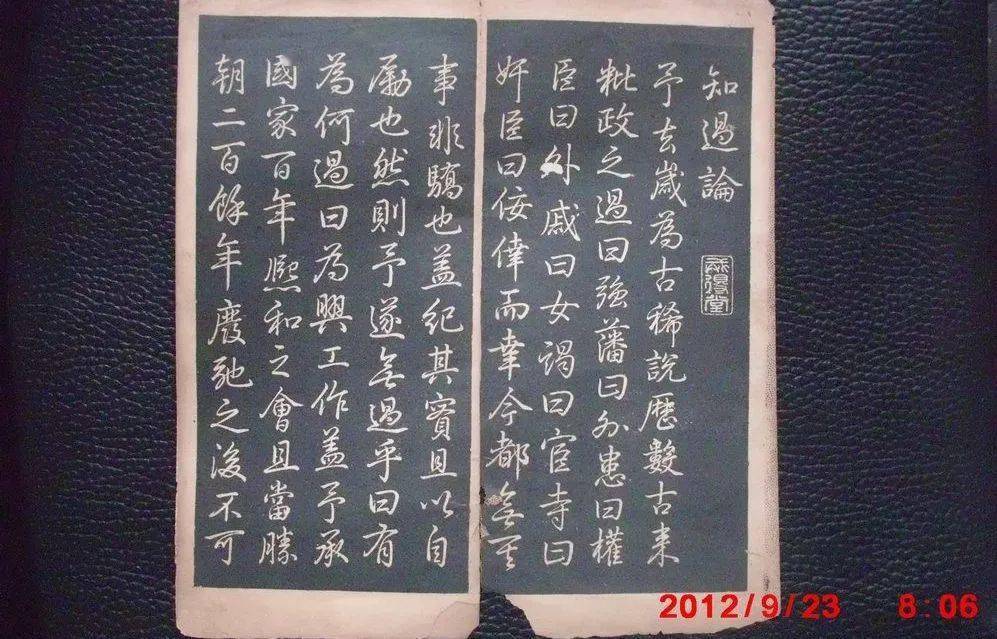 知過論
戒得堂
予去歲為古稀說歷數古來
粃政之過曰強藩曰外患曰權
臣曰外戚曰女謁曰宦寺曰
奸臣曰佞倖而幸今都無其
事非驕也盖紀其實且以自
勵也然則予遂無過乎曰有
為何過曰為興工作盖予承
國家百年熙和之會且當勝
朝二百餘年廢弛之後不可
2012/9/23 8:06